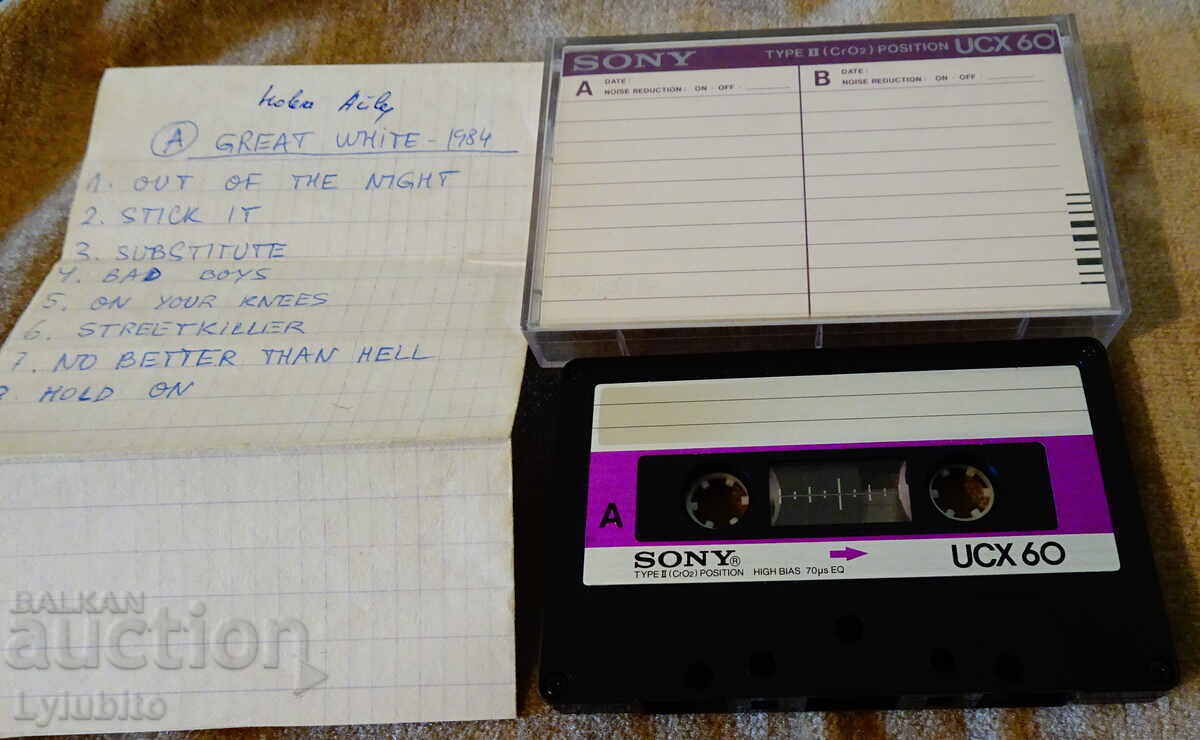 (A) GREAT WHITE - 1984
1. OUT OF THE NIGHT
2. STICK IT
3. SUBSTITUTE
4. BAD BOYS
5. ON YOUR KNEES
6. STREETKILLER
7. NO BETTER THAN HELL
8 HOLD ON
SONY TYPE II (CrO2) POSITION UCX 60
A DATE :
NOISE REDUCTION : ON · OFF
B DATE :
NOISE REDUCTION : ON · OFF
A
SONY® UCX 60
TYPE II (CrO2) POSITION HIGH BIAS 70μs EQ
BALKAN
auction
Lylubito